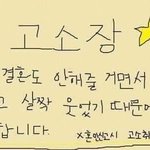 고소장
결혼도 안해줄 거면서
고 살짝 웃었기 때문에
합니다. x혼했고시 고소취